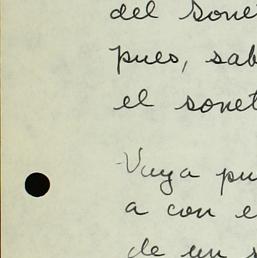 del sone
pues, sab
el sonet
Vaya pu
a con e
de un s